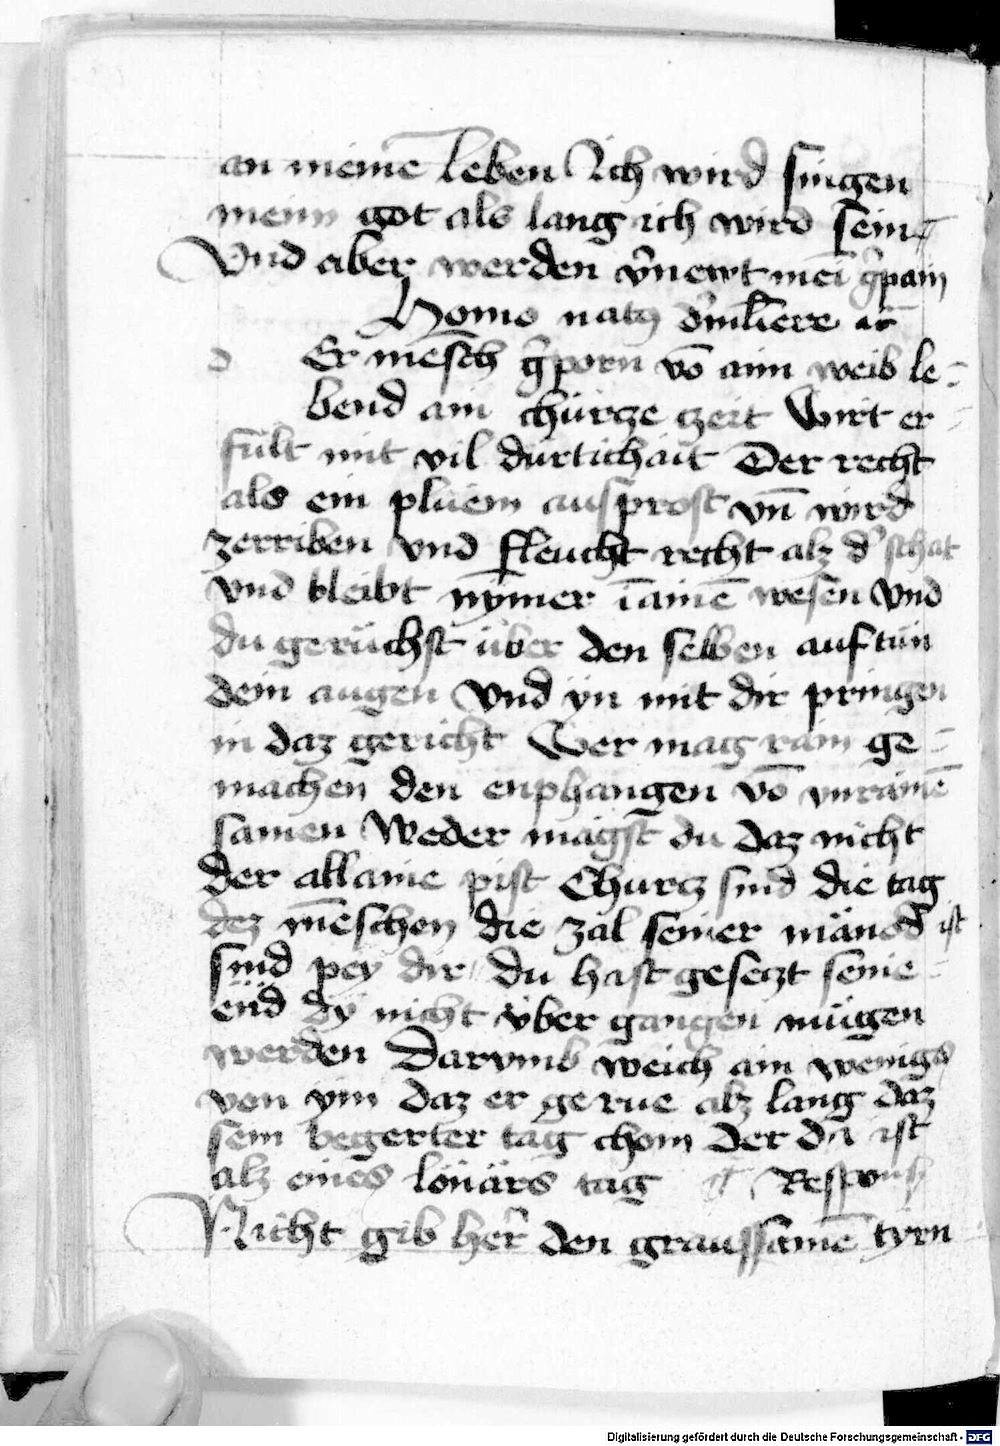 an meinē leben Ich wird singen
meinn got als lang ich wird sein
Vnd aber werden v̾newt mei g̾pain
Homo natꝫ d̾ mul̄iere ꝛc̄
d Er mēsch g̾porn vō aim weib le=
bend ain chürcze czeit Wirt er=
fült mit vil dürtichait Der recht
als ein plüem ausprost vn̄ wird
zerriben vnd fleucht recht alz d̾ schat
vnd bleibt nȳmer ī ainē wesen Vnd
du gerüchst über den selben auf tün
dein augen Vnd yn mit dir pringen
in daz gericht Wer mag rain ge=
machen den enphangen vō vnrainē
samen Weder mägst du daz nicht
der allaine pist Churcz sind die tag
dez mēschen die zal seiner mänod ist
sind pey dir du hast geseczt seine=
end dy nicht v̈ber gangen mügen
werden Darvmb weich ain wenig
von ym daz er gerue alz lang daz
sein begerter tag chom Der da ist
alz eines lönärs tag Respons
Nicht gib her̄ den graussamē tyrn
Digitalisierung gefördert durch die Deutsche Forschungsgemeinschaft - DFG